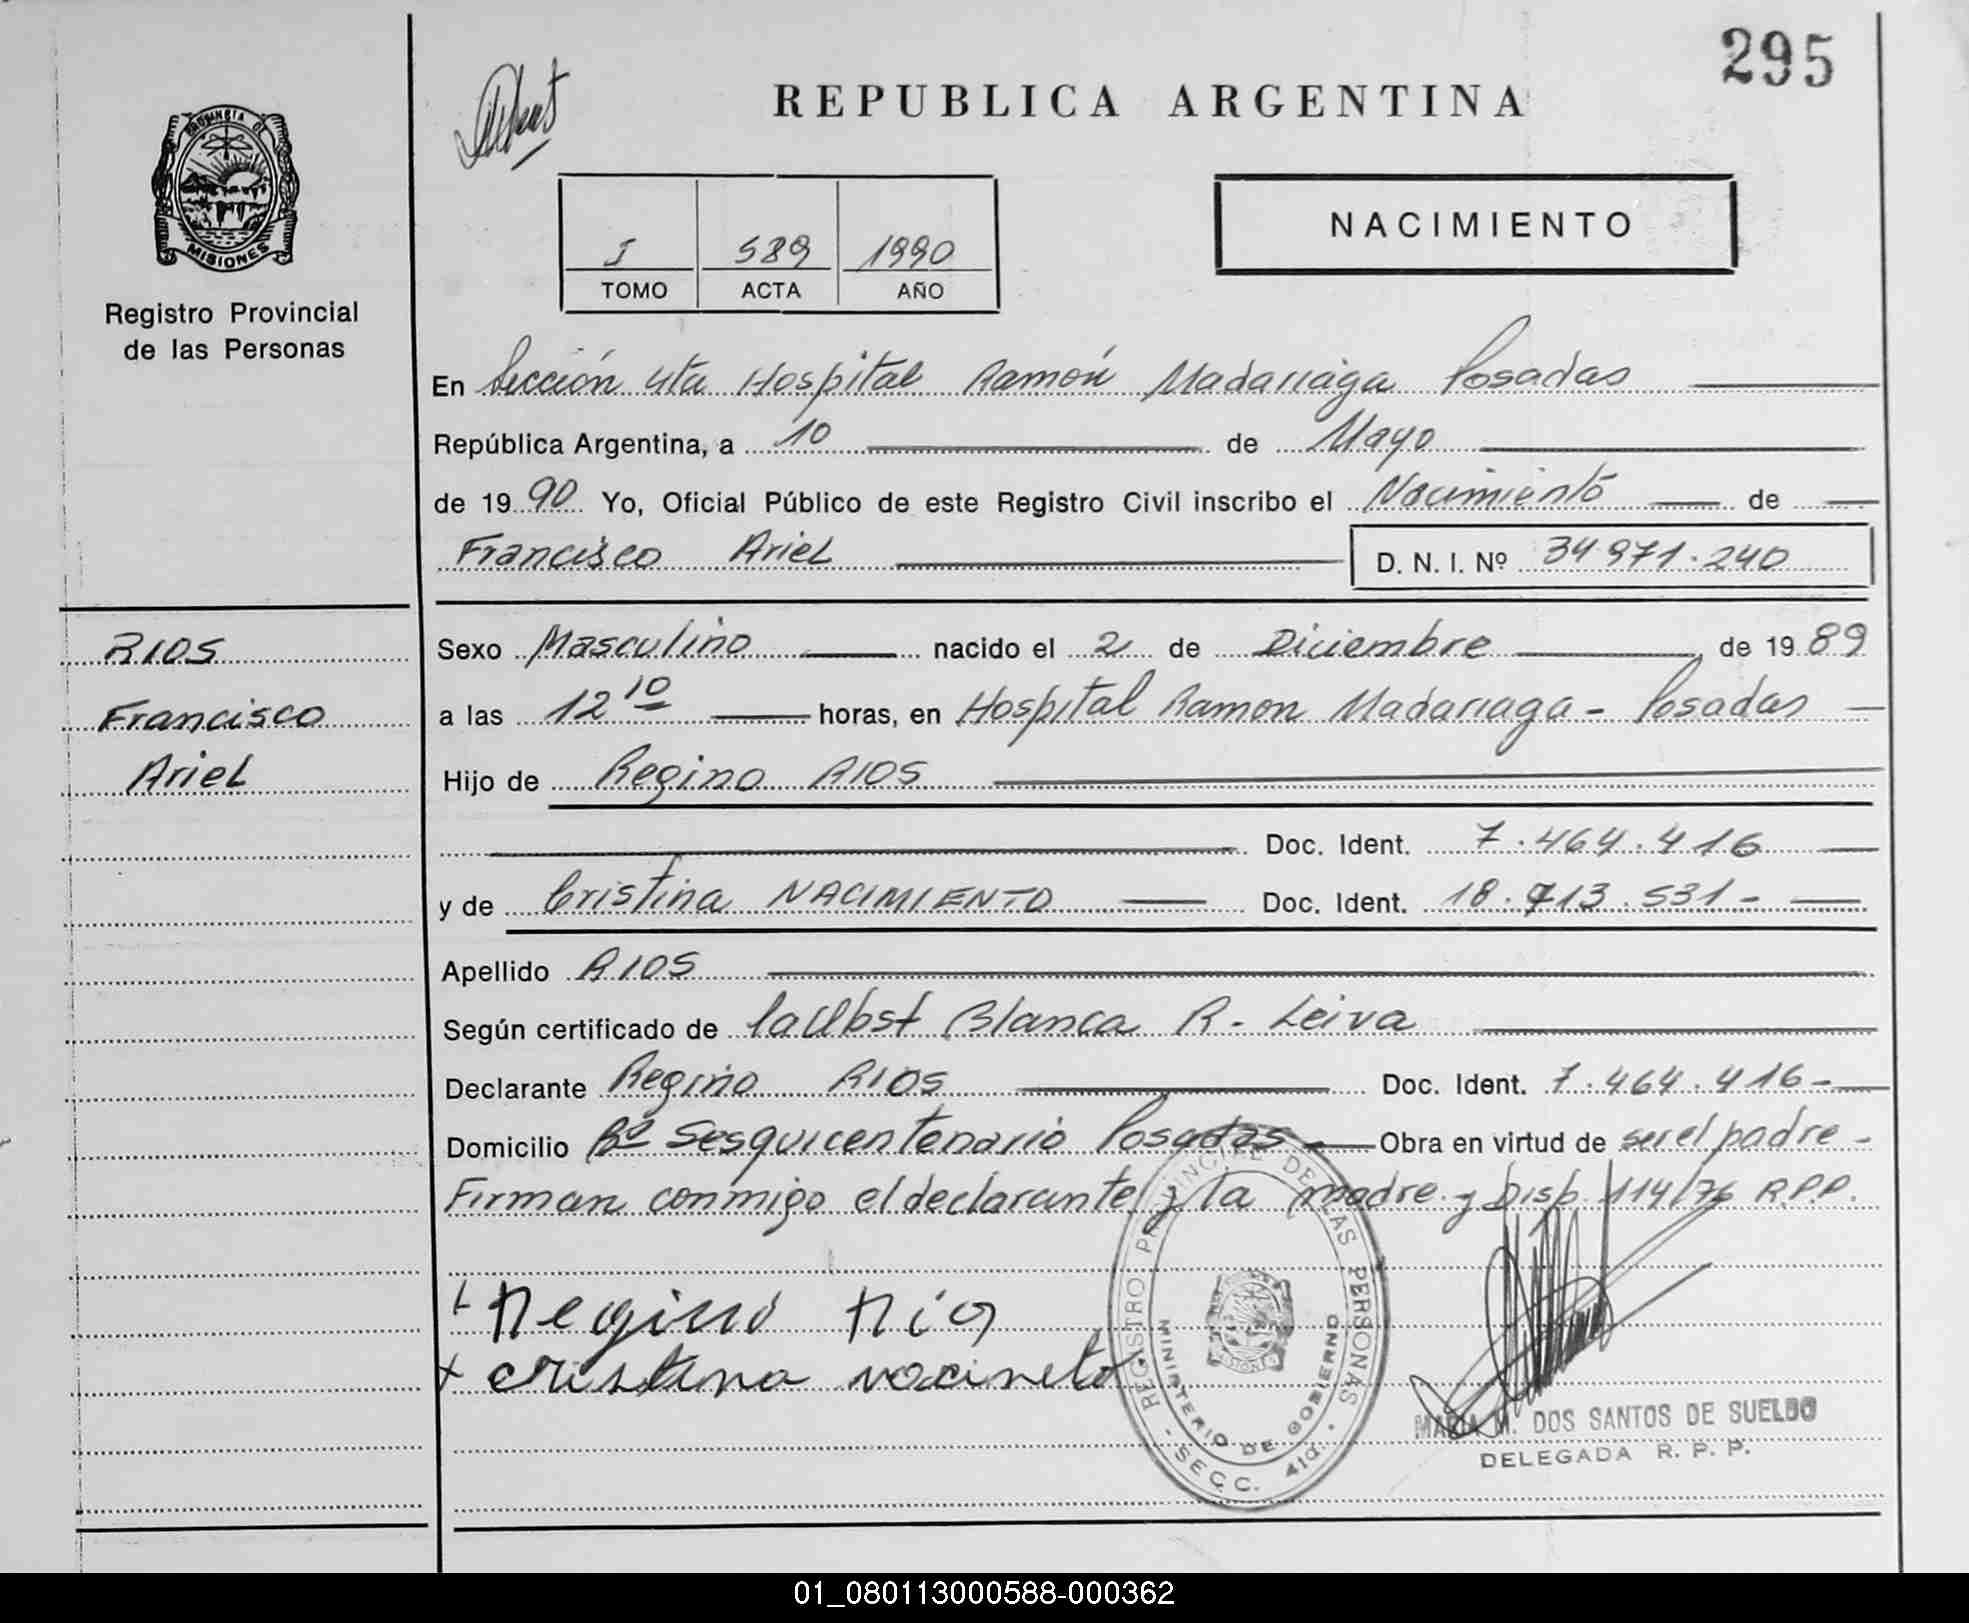 295
REPUBLICA ARGENTINA
PROVINCIA DE
MISIONES
Registro Provincial
de las Personas
NACIMIENTO
I 589 1990
TOMO ACTA AÑO
En Sección 4ta Hospital Ramón Madariaga Posadas
República Argentina, a 10 de Mayo
de 1990 Yo, Oficial Público de este Registro Civil inscribo el Nacimiento de
Francisco Ariel D. N. I. Nº 34.971.240
RIOS
Francisco
Ariel
Sexo Masculino nacido el 2 de Diciembre de 1989
a las 12 10 horas, en Hospital Ramon Madariaga - Posadas
Hijo de Regino RIOS
Doc. Ident. 7.464.416
y de Cristina NACIMIENTO Doc. Ident. 18.713.531-
Apellido RIOS
Según certificado de la Obst Blanca R. Leiva
Declarante Regino RIOS Doc. Ident. 7.464.416-
Domicilio Bº Sesquicentenario Posadas Obra en virtud de ser el padre -
Firman conmigo el declarante y la madre y Disp. 114/76 R.P.P.
Regino Rio
cristina nacineto
REGISTRO PROVINCIAL DE LAS PERSONAS
MINISTERIO DE GOBIERNO
SECC. 41a.
MARIA M. DOS SANTOS DE SUELDO
DELEGADA R. P. P.
01_080113000588-000362